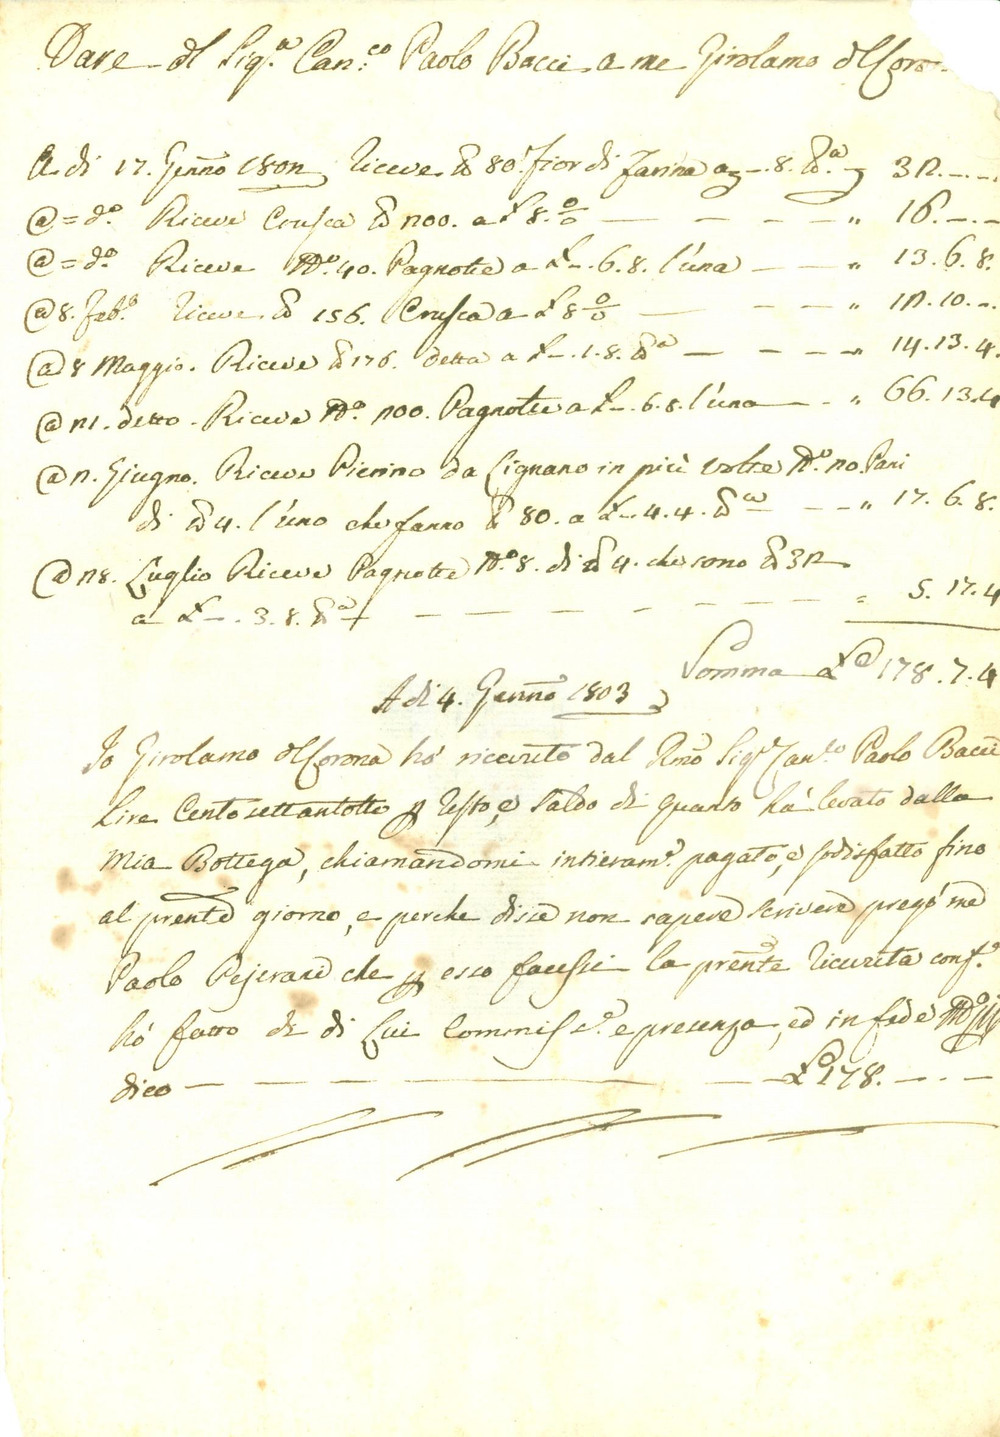 Dare il Sig.re Can.co Paolo Bacci a me Girolamo del Coro
A di 17. Genno 1802 Riceve lb 80. Fior di Farina a -.8. lb.a 32.-.-.
@ = do. Riceve Crusca lb 200. a £ 8. % — — — — " 16.-.-
@ = do. Riceve No. 40. Pagnotte a £ -.6.8. l'una — — " 13.6.8.
@ 8. Febo. Riceve lb 156. Crusca a £ 8 % — — — " 12.10.-.
@ 8 Maggio. Riceve lb 176. detta a £ -.1.8. lb.a — — — " 14.13.4.
@ 21. detto. Riceve No. 200. Pagnotte a £ -.6.8. l'una — - " 66.13.4
@ 2. Giugno. Riceve Pierino da Cignano in più volte No. 20. Pani
di lb 4. l'uno che fanno lb 80. a £ -.4.4. lb.a — - - " 17.6.8.
@ 28. Luglio Riceve Pagnotte No. 8. di lb 4. che sono lb 32
a £ -.3.8. lb.a — — — — — — — " 5.17.4
Somma £ 178.7.4
A di 4. Genno 1803
Io Girolamo del Corona hó ricevuto dal Rmo Sigr Cano. Paolo Bacci
Lire Cento settantotto p resto, e saldo di quanto há levato dalla
mia Bottega, chiamandomi intieram.e pagato, e sodisfatto fino
al prente giorno, e perche disse non sapere scrivere pregó me
Paolo che p esso facessi la prente ricevuta conf.e
hó fatto di di Lui Commiss.e e presenza, ed in fede
dico — — — — — — £ 178.-.-